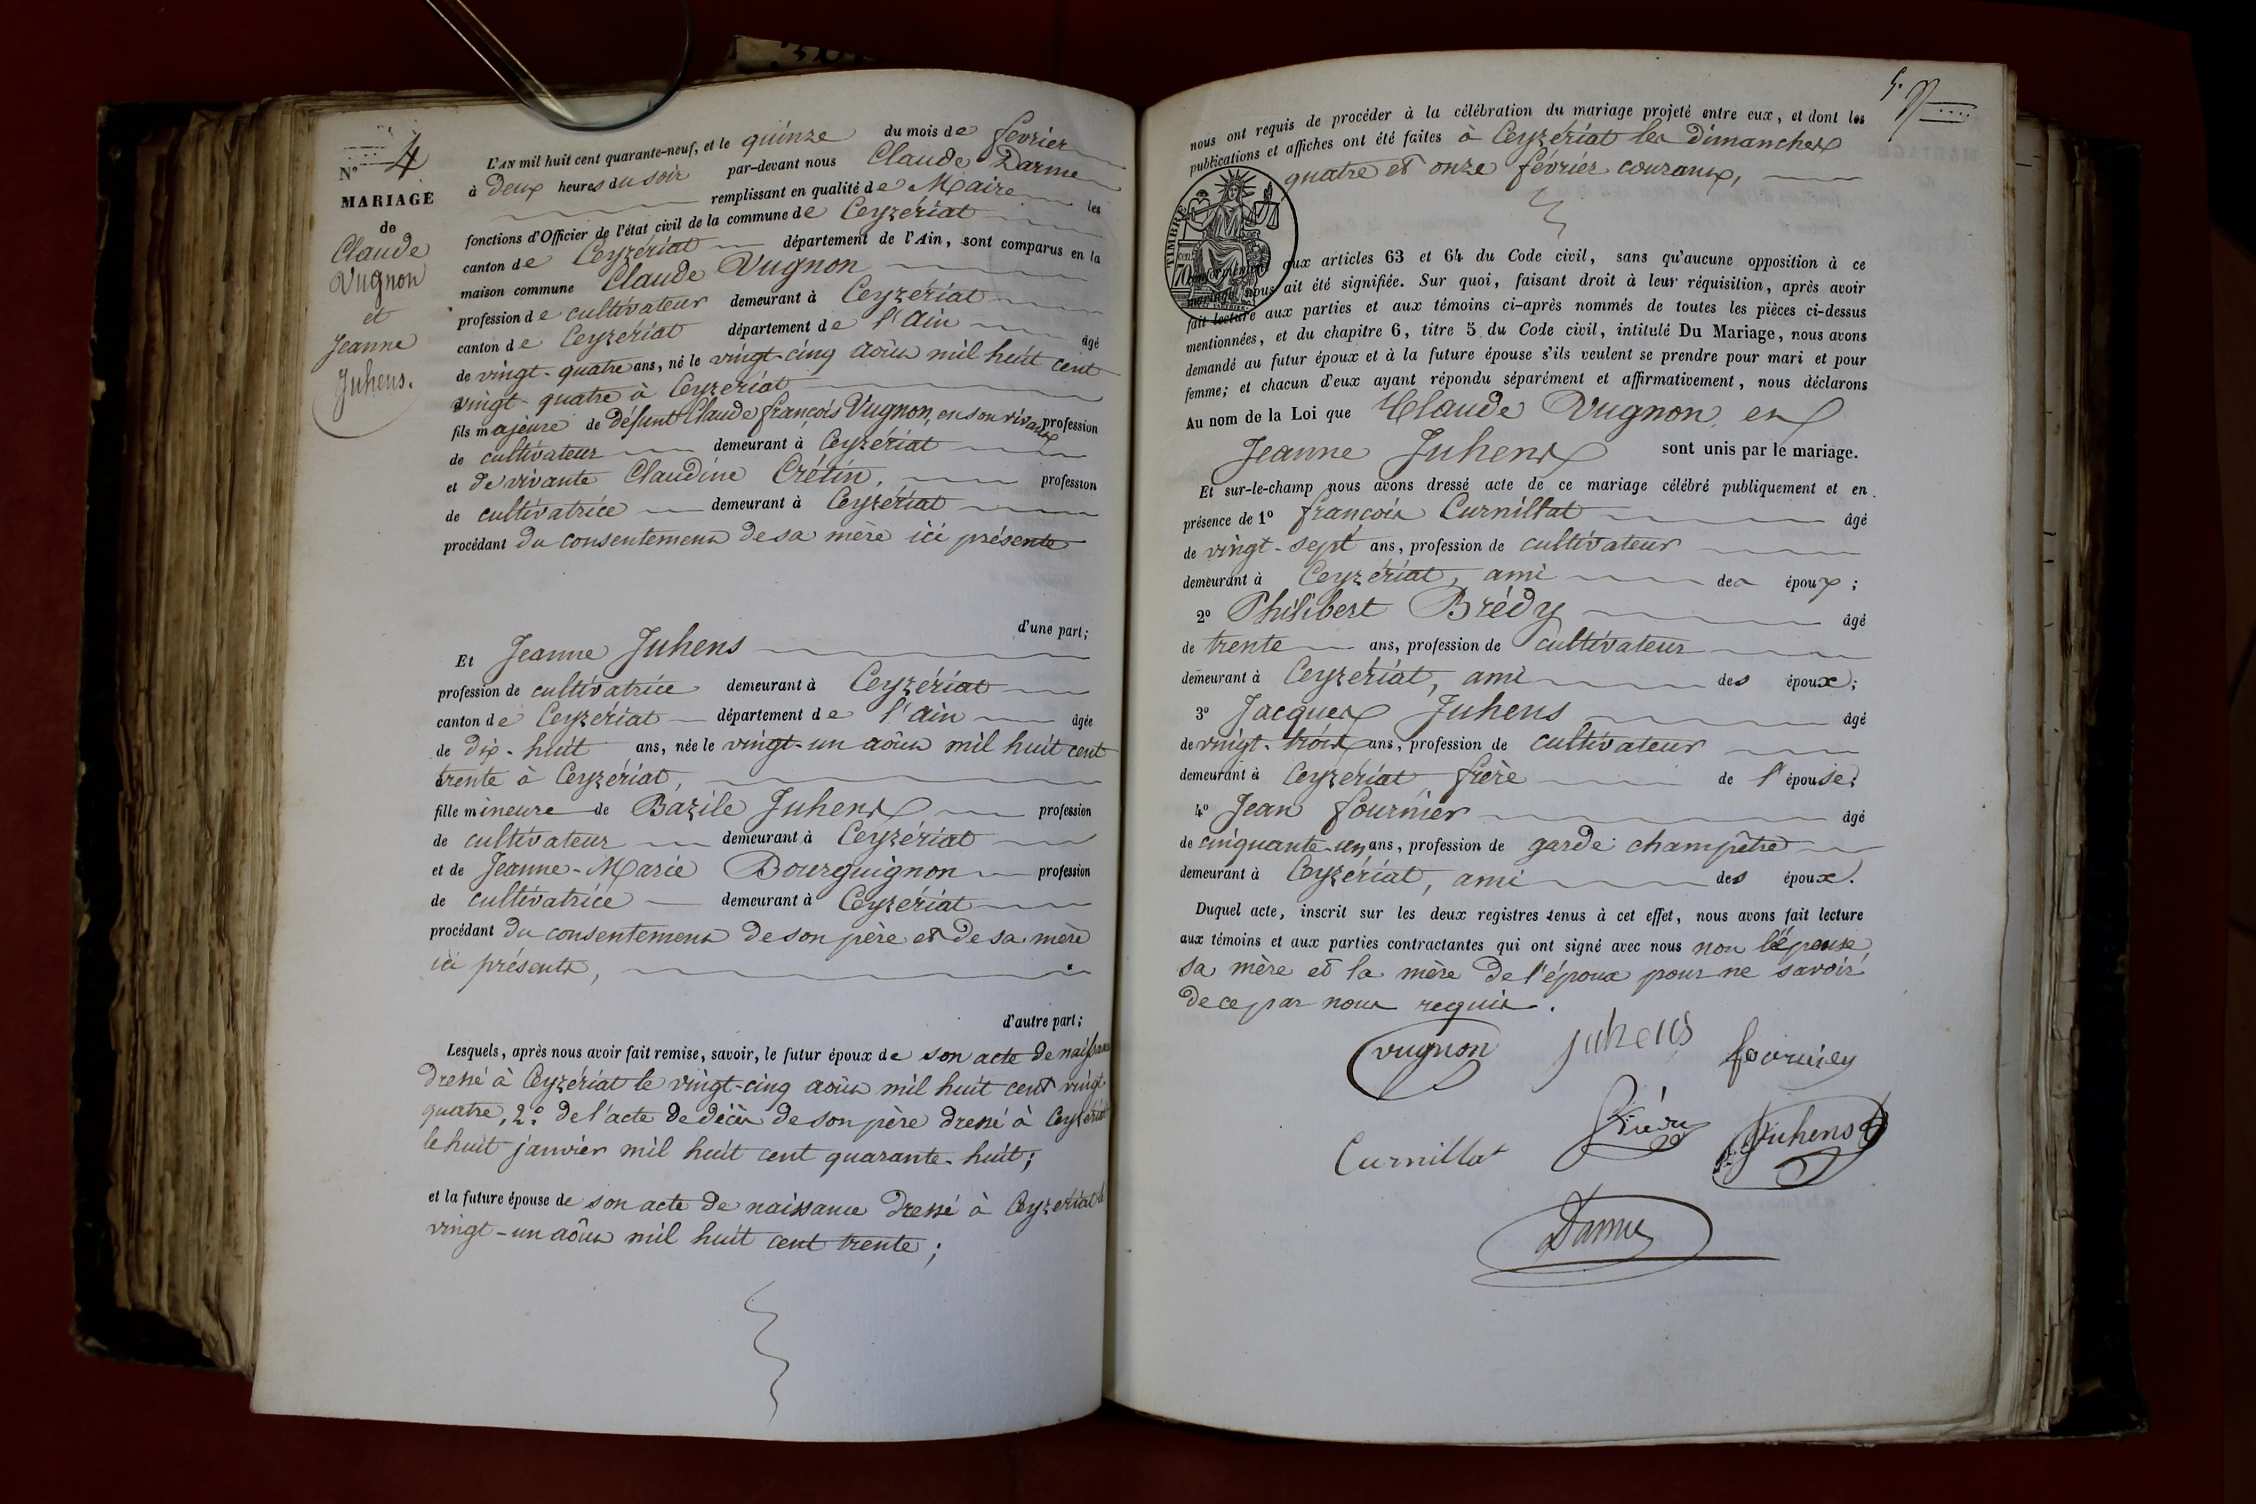 N° 4
MARIAGE
de
Claude
Vugnon
et
Jeanne
Juhens.
L'AN mil huit cent quarante-neuf, et le quinze du mois de février
à deux heures du soir par-devant nous Claude Darme
remplissant en qualité de Maire les
fonctions d'Officier de l'état civil de la commune de Ceyzériat
canton de Ceyzériat département de l'Ain, sont comparus en la
maison commune Claude Vugnon
profession de cultivateur demeurant à Ceyzériat
canton de Ceyzériat département de l'Ain âgé
de vingt-quatre ans, né le vingt-cinq août mil huit cent
vingt-quatre à Ceyzériat
fils majeure de défunt Claude françois Vugnon, en son vivant profession
de cultivateur demeurant à Ceyzériat
et de vivante Claudine Crétin, profession
de cultivatrice demeurant à Ceyzériat
procédant du consentement de sa mère ici présente
d'une part;
Et Jeanne Juhens
profession de cultivatrice demeurant à Ceyzériat
canton de Ceyzériat département de l'Ain âgée
de dix-huit ans, née le vingt-un août mil huit cent
trente à Ceyzériat,
fille mineure de Bazile Juhens profession
de cultivateur demeurant à Ceyzériat
et de Jeanne-Marie Bourguignon profession
de cultivatrice demeurant à Ceyzériat
procédant du consentement de son père et de sa mère
ici présents,
d'autre part;
Lesquels, après nous avoir fait remise, savoir, le futur époux de son acte de naissance
dressé à Ceyzériat le vingt-cinq août mil huit cent vingt-
quatre, 2° de l'acte de décès de son père dressé à Ceyzériat
le huit janvier mil huit cent quarante-huit;
et la future épouse de son acte de naissance dressé à Ceyzériat le
vingt-un août mil huit cent trente;
5.
nous ont requis de procéder à la célébration du mariage projeté entre eux, et dont les
publications et affiches ont été faites à Ceyzériat les dimanches
quatre et onze février courant,
TIMBRE
70
conformément aux articles 63 et 64 du Code civil, sans qu'aucune opposition à ce
mariage nous ait été signifiée. Sur quoi, faisant droit à leur réquisition, après avoir
fait lecture aux parties et aux témoins ci-après nommés de toutes les pièces ci-dessus
mentionnées, et du chapitre 6, titre 5 du Code civil, intitulé Du Mariage, nous avons
demandé au futur époux et à la future épouse s'ils veulent se prendre pour mari et pour
femme; et chacun d'eux ayant répondu séparément et affirmativement, nous déclarons
Au nom de la Loi que Claude Vugnon et
Jeanne Juhens sont unis par le mariage.
Et sur-le-champ nous avons dressé acte de ce mariage célébré publiquement et en
présence de 1° françois Curnillat âgé
de vingt-sept ans, profession de cultivateur
demeurant à Ceyzériat, ami des époux;
2° Philibert Brédy âgé
de trente ans, profession de cultivateur
demeurant à Ceyzériat, ami des époux;
3° Jacques Juhens âgé
de vingt-trois ans, profession de cultivateur
demeurant à Ceyzériat frère de l'épouse;
4° Jean fournier âgé
de cinquante-un ans, profession de garde champêtre
demeurant à Ceyzériat, ami des époux.
Duquel acte, inscrit sur les deux registres tenus à cet effet, nous avons fait lecture
aux témoins et aux parties contractantes qui ont signé avec nous non l'épouse
sa mère et la mère de l'époux pour ne savoir
de ce par nous requis.
vugnon juhens fournier
Curnillat Brédy Juhens
Darme